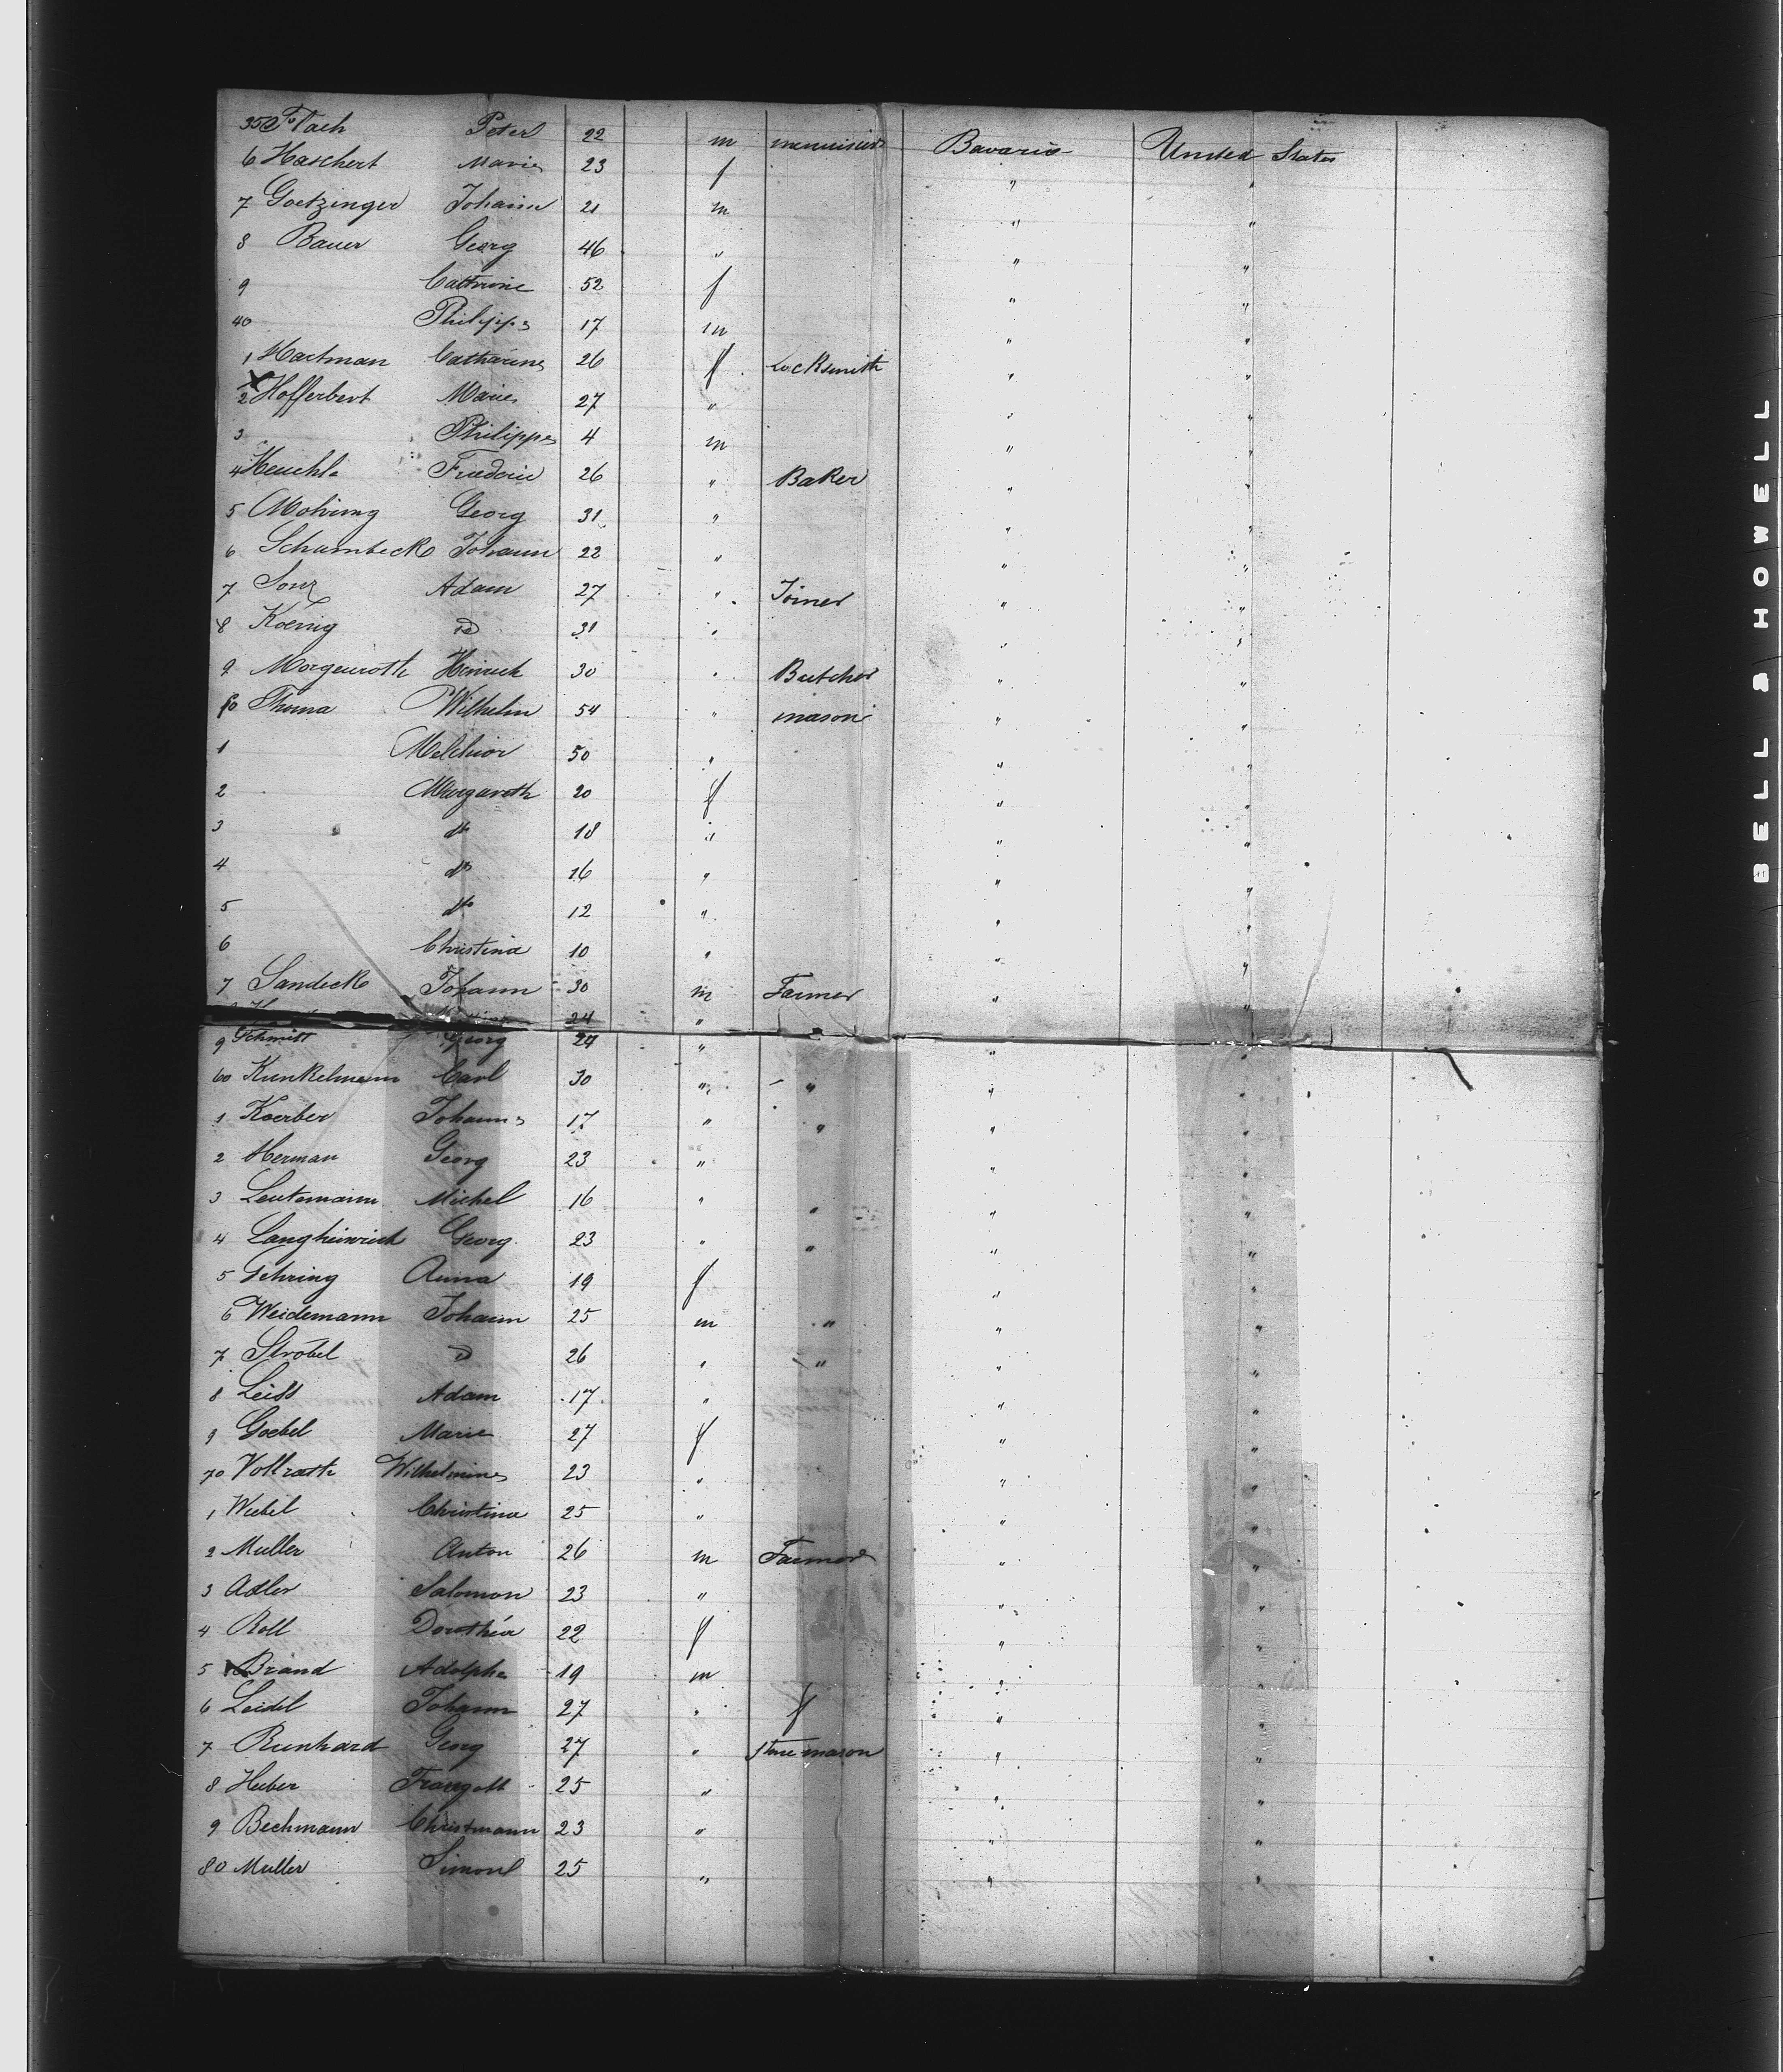 35 Flach Peter 22 m menuisier Bavaria United States
6 Haschert Marie 23 f " "
7 Goetzinger Johann 21 m " "
8 Bauer Georg 46 " " "
9 Cathrine 52 f " "
40 Philippe 17 m " "
1 Hartman Catharine 26 f Locksmith " "
2 Hofferbert Marie 27 " " "
3 Philippe 4 m " "
4 Heuchle Frederic 26 " Baker " "
5 Mohring Georg 31 " " "
6 Schambeck Johann 22 " " "
7 Adam 27 " Joiner " "
8 Koenig id 31 " " "
9 Morgenroth Heinrich 30 " Butcher " "
50 Thuma Wilhelm 54 " mason " "
1 Melchior 50 " " "
2 Margareth 20 f " "
3 do 18 " " "
4 do 16 " " "
5 do 12 " " "
6 Christina 10 " " "
7 Sandeck Johann 30 m Farmer " "
24 "
9 Schmitt Georg 24 " " "
60 Kunkelmann Carl 30 " " " "
1 Koerber Johann 17 " " " "
2 Herman Georg 23 " " "
3 Leutemann Michel 16 " " " "
4 Langheinrich Georg 23 " " " "
5 Gehring Anna 19 f " "
6 Weidemann Johann 25 m " " "
7 Strobel id 26 " " " "
8 Leiss Adam 17 " " "
9 Goebel Marie 27 f " "
70 Vollrath Wilhelmine 23 " " "
1 Wiebel Christina 25 " " "
2 Muller Anton 26 m Farmer " "
3 Adler Salomon 23 " " "
4 Roll Dorothea 22 f " "
5 Brand Adolphe 19 m " "
6 Leidel Johann 27 " f " "
7 Reinhard Georg 27 " stone mason " "
8 Huber Traugott 25 " " "
9 Bechmann Christmann 23 " " "
80 Muller Simon 25 " " "
BELL & HOWELL